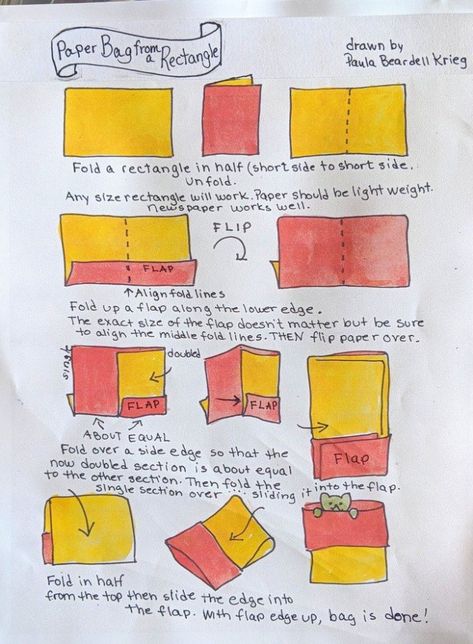 Paper Bag from
a Rectangle
drawn by
Paula Beardell Krieg
Fold a rectangle in half (short side to short side.
Unfold.
Any size rectangle will work. Paper should be light weight.
newspaper works well.
FLIP
FLAP
↑Align fold lines
Fold up a flap along the lower edge.
The exact size of the flap doesn't matter but be sure
to align the middle fold lines. THEN flip paper over.
single
doubled
FLAP
FLAP
Flap
ABOUT EQUAL
Fold over a side edge so that the
now doubled section is about equal
to the other section. Then fold the
single section over .... sliding it into the flap.
Fold in half
from the top then slide the edge into
the flap. With flap edge up, bag is done!